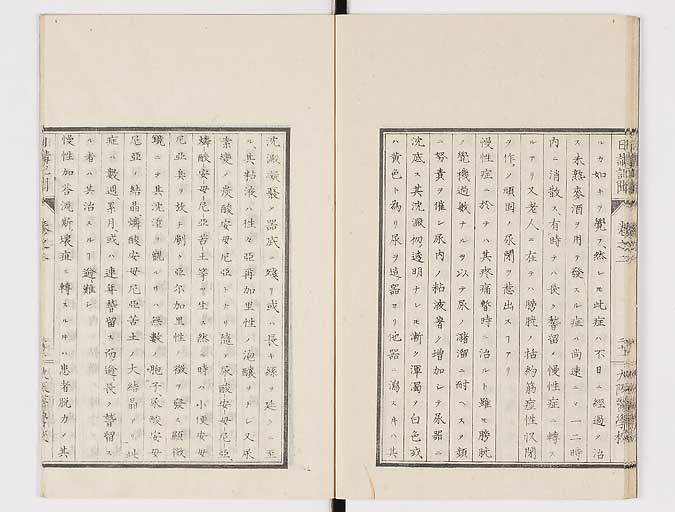 ルカ如キヲ覺フ然レモ此症ハ不日ニ經過シ治
ス未熟麥酒ヲ用テ發スル症ハ尚速ニシ一二時
内ニ消散ス有時テハ長ク瞀留シ慢性症ニ轉ス
ルアリ又老人ニ在テハ膀胱ノ括約筋痙性収閉
ヲ作シ頑固ノ尿閉ヲ惹出スアリ
慢性症ニ於テハ其疼痛暫時ニ治ルト雖モ膀胱
ノ覺機過敏ナルヲ以テ尿ノ瀦溜ニ耐ヘス頻
ニ努責ヲ催シ尿内ノ粘液著ク増加シテ尿器ニ
沈底ス其沈澱初透明ナレモ漸ク渾濁シ白色或
ハ黄色ト為リ尿ヲ這器ヨリ他器ニ瀉スルハ其
沈澱凝聚シ器底ニ殘リ或ハ長キ線ヲ延ク
ル其粘液ハ性亞爾加里性ノ泡釀ヲナシ又尿
素變シ炭酸安母尼亞トナリ隨テ尿酸安母尼亞
燐酸安母尼亞苦土等ヲ生ス然ル時ハ小便安母
尼亞臭ヲ放チ劇ク亞尔加里性ノ徴ヲ發ス顯微
鏡ニテ其沈澄ヲ觀ルハ無數ノ胞子尿酸安母
尼亞ノ結晶燐酸安母尼亞苦土ノ大結晶アリ此
症ハ數週累月或ハ連年瞀留ス而逾長ク瞀留ス
ル者ハ其治スル逾難シ
慢性加答流漸壞症ニ轉スルハ患者脱力シ其